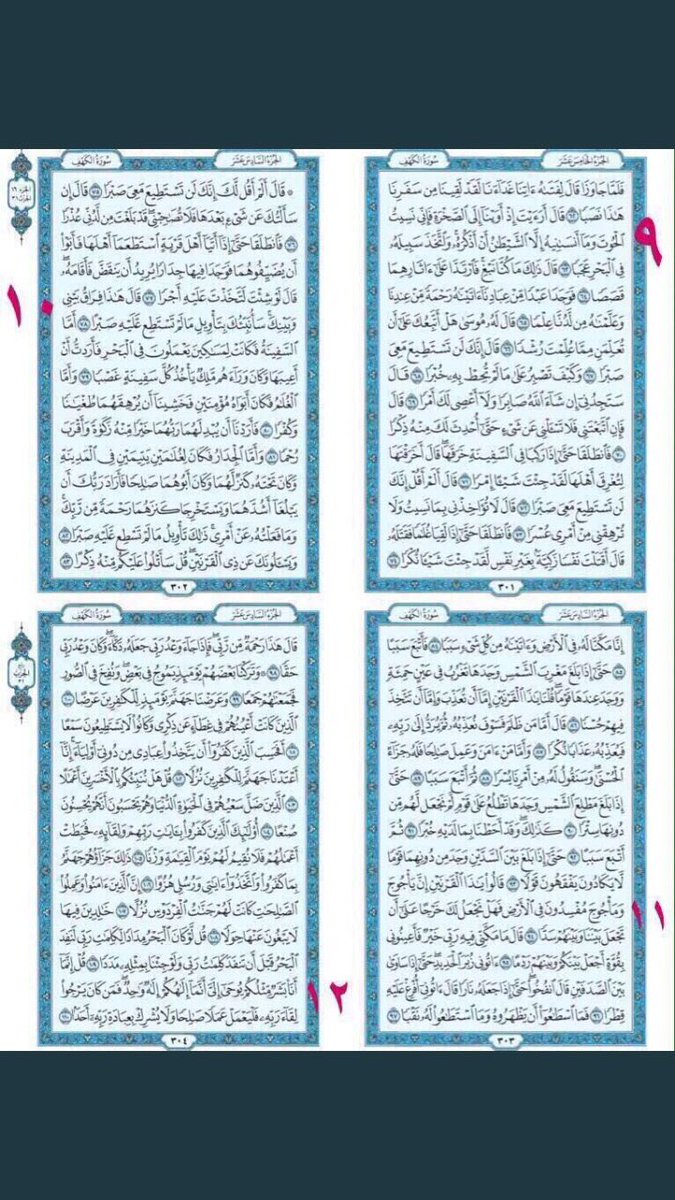 الجزء الخامس عشر
سورة الكهف
فلما جاوزا قال لفتىه ءاتنا غداءنا لقد لقينا من سفرنا
هذا نصبا ٦٢ قال أرءيت إذ أوينا إلى الصخرة فإني نسيت
الحوت وما أنسىنيه إلا الشيطن أن أذكره واتخذ سبيله
في البحر عجبا ٦٣ قال ذلك ما كنا نبغ فارتدا على ءاثارهما
قصصا ٦٤ فوجدا عبدا من عبادنا ءاتينه رحمة من عندنا
وعلمنه من لدنا علما ٦٥ قال له موسى هل أتبعك على أن
تعلمن مما علمت رشدا ٦٦ قال إنك لن تستطيع معي
صبرا ٦٧ وكيف تصبر على ما لم تحط به خبرا ٦٨ قال
ستجدني إن شاء الله صابرا ولا أعصي لك أمرا ٦٩ قال
فإن اتبعتني فلا تسءلني عن شيء حتى أحدث لك منه ذكرا
٧٠ فانطلقا حتى إذا ركبا في السفينة خرقها قال أخرقتها
لتغرق أهلها لقد جئت شيئا إمرا ٧١ قال ألم أقل إنك
لن تستطيع معي صبرا ٧٢ قال لا تؤاخذني بما نسيت ولا
ترهقني من أمري عسرا ٧٣ فانطلقا حتى إذا لقيا غلما فقتله
قال أقتلت نفسا زكية بغير نفس لقد جئت شيئا نكرا ٧٤
٣٠١
٩
الجزء السادس عشر
سورة الكهف
الجزء ١٦
الحزب ٣١
قال ألم أقل لك إنك لن تستطيع معي صبرا ٧٥ قال إن
سألتك عن شيء بعدها فلا تصحبني قد بلغت من لدني عذرا
٧٦ فانطلقا حتى إذا أتيا أهل قرية استطعما أهلها فأبوا
أن يضيفوهما فوجدا فيها جدارا يريد أن ينقض فأقامه
قال لو شئت لتخذت عليه أجرا ٧٧ قال هذا فراق بيني
وبينك سأنبئك بتأويل ما لم تستطع عليه صبرا ٧٨ أما
السفينة فكانت لمسكين يعملون في البحر فأردت أن
أعيبها وكان وراءهم ملك يأخذ كل سفينة غصبا ٧٩ وأما
الغلم فكان أبواه مؤمنين فخشينا أن يرهقهما طغينا
وكفرا ٨٠ فأردنا أن يبدلهما ربهما خيرا منه زكوة وأقرب
رحما ٨١ وأما الجدار فكان لغلمين يتيمين في المدينة
وكان تحته كنز لهما وكان أبوهما صلحا فأراد ربك أن
يبلغا أشدهما ويستخرجا كنزهما رحمة من ربك
وما فعلته عن أمري ذلك تأويل ما لم تسطع عليه صبرا ٨٢
ويسءلونك عن ذي القرنين قل سأتلوا عليكم منه ذكرا ٨٣
٣٠٢
١٠
الجزء السادس عشر
سورة الكهف
إنا مكنا له في الأرض وءاتينه من كل شيء سببا ٨٤ فأتبع سببا
٨٥ حتى إذا بلغ مغرب الشمس وجدها تغرب في عين حمئة
ووجد عندها قوما قلنا يذا القرنين إما أن تعذب وإما أن تتخذ
فيهم حسنا ٨٦ قال أما من ظلم فسوف نعذبه ثم يرد إلى ربه
فيعذبه عذابا نكرا ٨٧ وأما من ءامن وعمل صلحا فله جزاء
الحسنى وسنقول له من أمرنا يسرا ٨٨ ثم أتبع سببا ٨٩ حتى
إذا بلغ مطلع الشمس وجدها تطلع على قوم لم نجعل لهم من
دونها سترا ٩٠ كذلك وقد أحطنا بما لديه خبرا ٩١ ثم
أتبع سببا ٩٢ حتى إذا بلغ بين السدين وجد من دونهما قوما
لا يكادون يفقهون قولا ٩٣ قالوا يذا القرنين إن يأجوج
ومأجوج مفسدون في الأرض فهل نجعل لك خرجا على أن
تجعل بيننا وبينهم سدا ٩٤ قال ما مكني فيه ربي خير فأعينوني
بقوة أجعل بينكم وبينهم ردما ٩٥ ءاتوني زبر الحديد حتى إذا ساوى
بين الصدفين قال انفخوا حتى إذا جعله نارا قال ءاتوني أفرغ عليه
قطرا ٩٦ فما اسطعوا أن يظهروه وما استطعوا له نقبا ٩٧
٣٠٣
١١
الجزء السادس عشر
سورة الكهف
قال هذا رحمة من ربي فإذا جاء وعد ربي جعله دكاء وكان وعد ربي
حقا ٩٨ وتركنا بعضهم يومئذ يموج في بعض ونفخ في الصور
فجمعنهم جمعا ٩٩ وعرضنا جهنم يومئذ للكفرين عرضا ١٠٠
الذين كانت أعينهم في غطاء عن ذكري وكانوا لا يستطيعون سمعا
١٠١ أفحسب الذين كفروا أن يتخذوا عبادي من دوني أولياء إنا
أعتدنا جهنم للكفرين نزلا ١٠٢ قل هل ننبئكم بالأخسرين أعملا
١٠٣ الذين ضل سعيهم في الحيوة الدنيا وهم يحسبون أنهم يحسنون
صنعا ١٠٤ أولئك الذين كفروا بءايت ربهم ولقائه فحبطت
أعملهم فلا نقيم لهم يوم القيمة وزنا ١٠٥ ذلك جزاؤهم جهنم
بما كفروا واتخذوا ءايتي ورسلي هزوا ١٠٦ إن الذين ءامنوا وعملوا
الصلحت كانت لهم جنت الفردوس نزلا ١٠٧ خلدين فيها
لا يبغون عنها حولا ١٠٨ قل لو كان البحر مدادا لكلمت ربي لنفد
البحر قبل أن تنفد كلمت ربي ولو جئنا بمثله مددا ١٠٩ قل إنما
أنا بشر مثلكم يوحى إلي أنما إلهكم إله وحد فمن كان يرجوا
لقاء ربه فليعمل عملا صلحا ولا يشرك بعبادة ربه أحدا ١١٠
٣٠٤
١٢